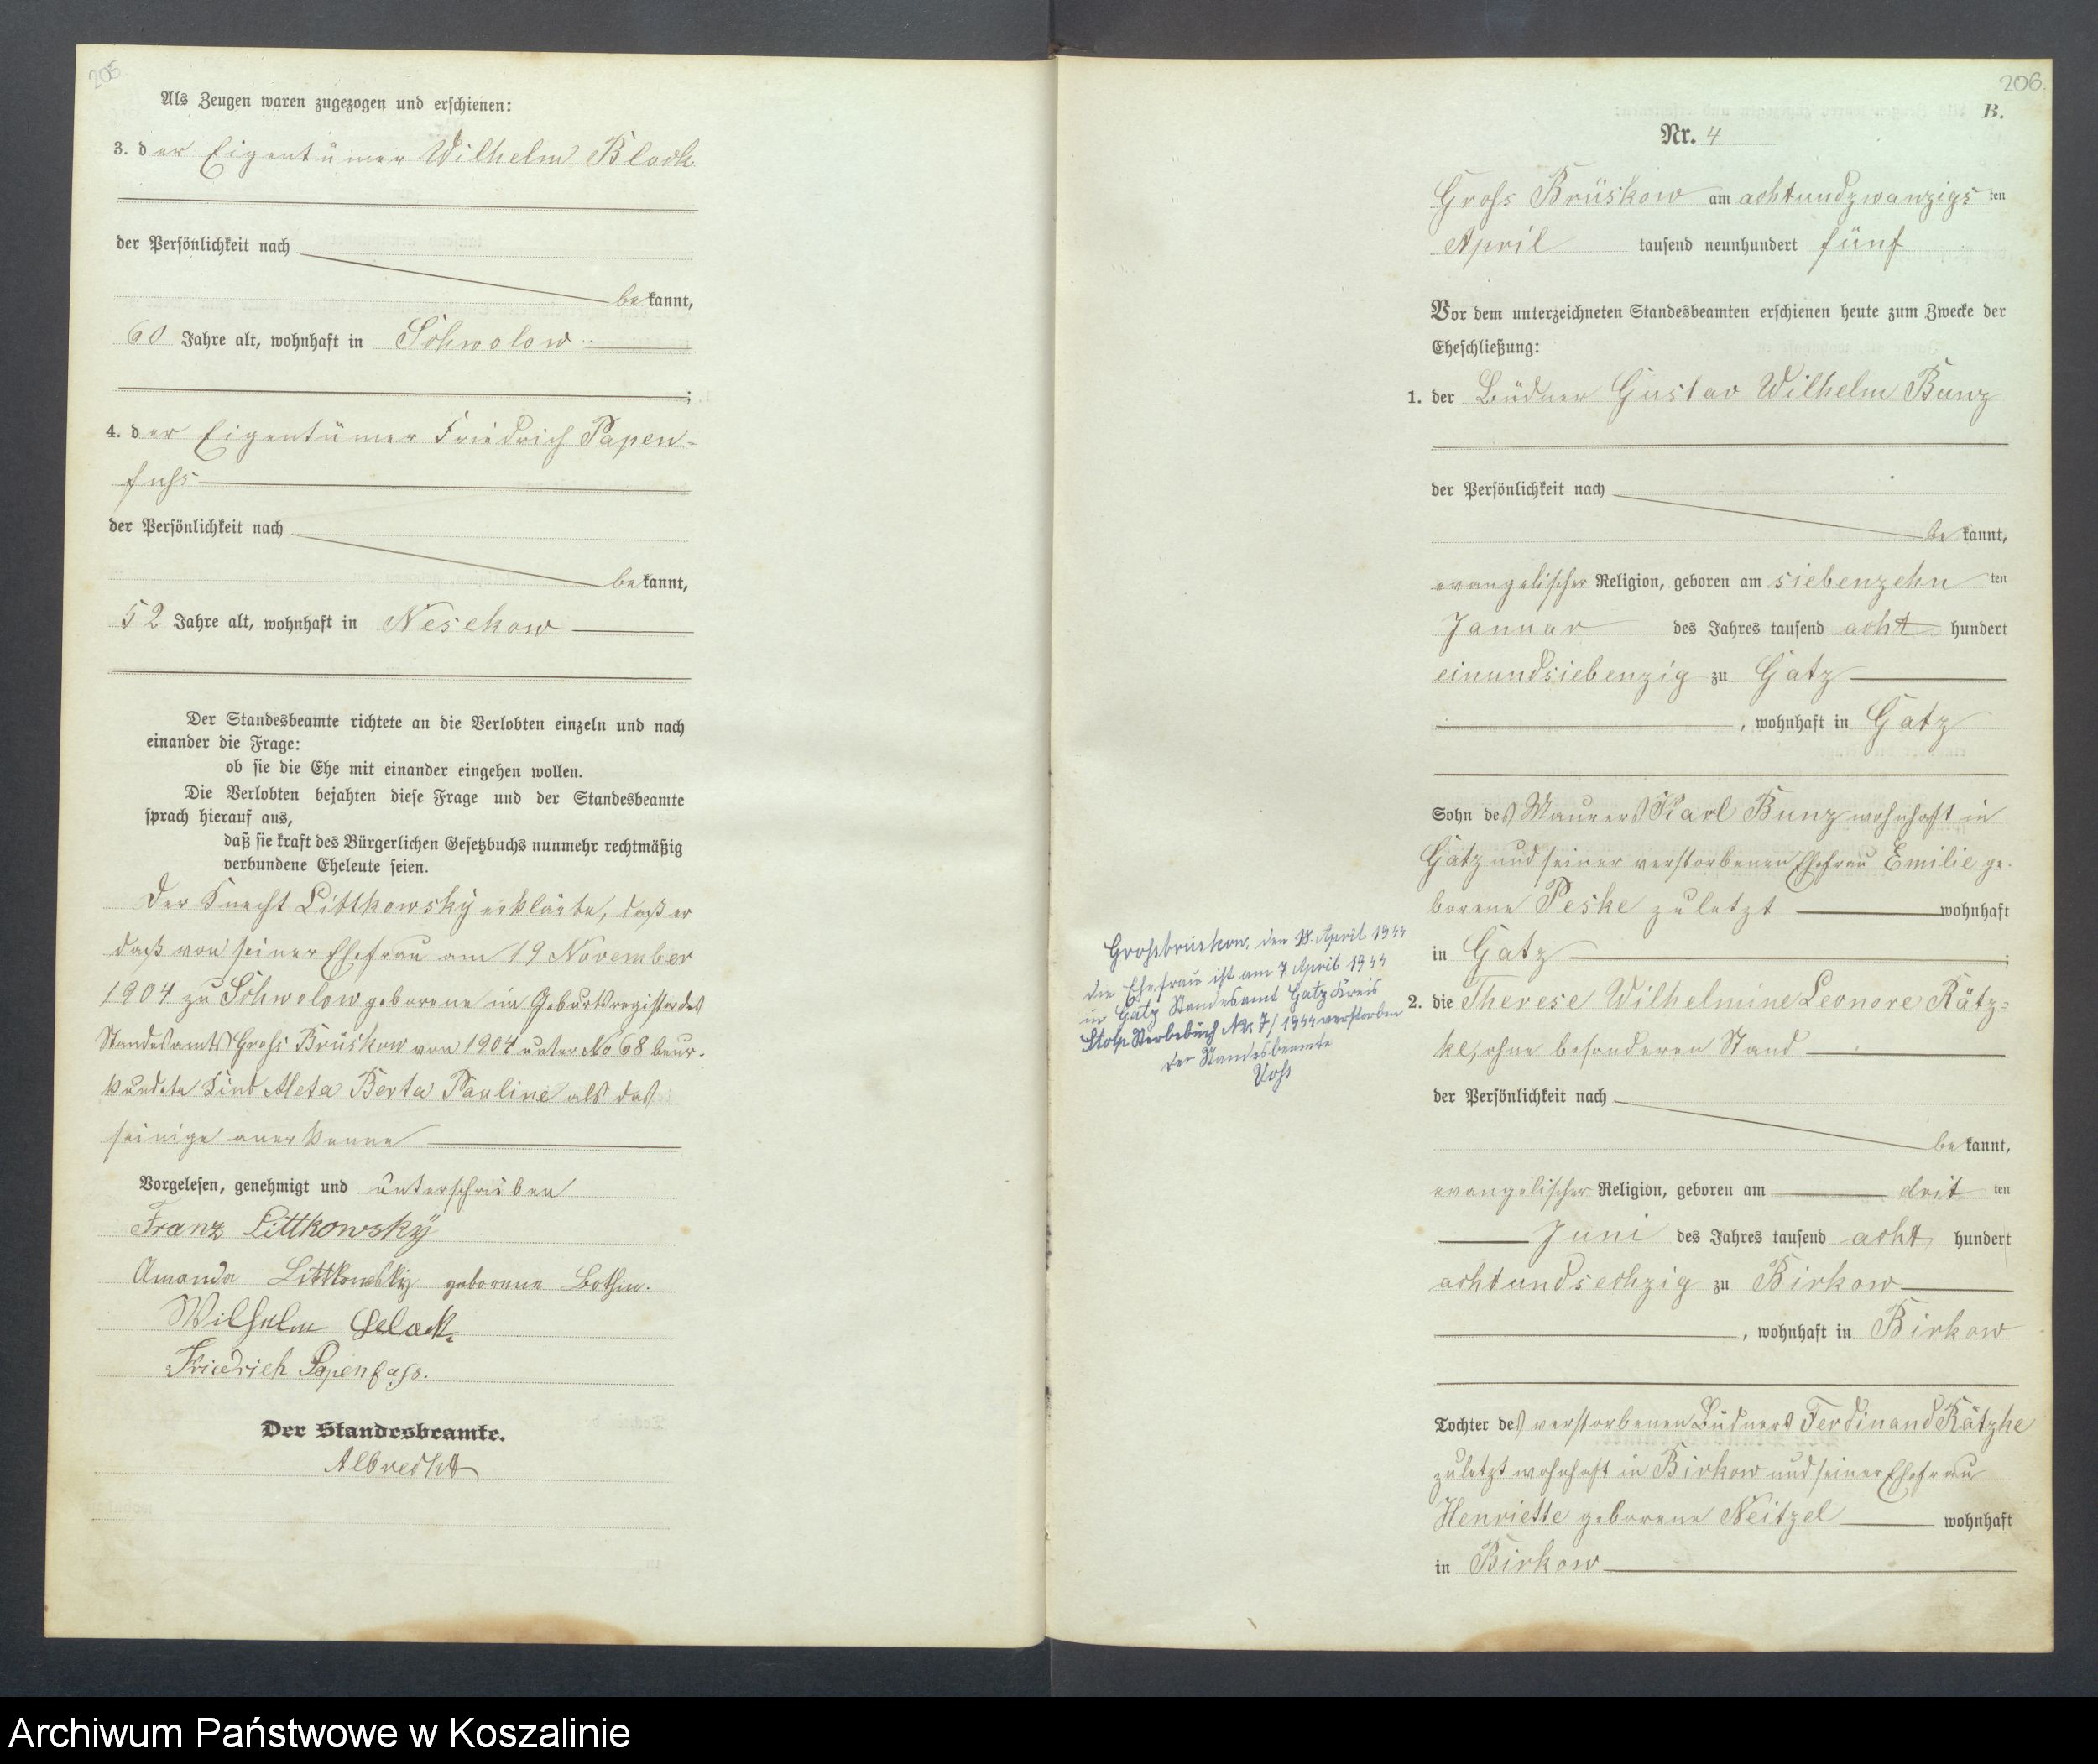 205
Als Zeugen waren zugezogen und erschienen:
3. der Eigentümer Wilhelm Block
der Persönlichkeit nach
bekannt,
60 Jahre alt, wohnhaft in Schwolow
;
4. der Eigentümer Friedrich Papen-
fuhs
der Persönlichkeit nach
bekannt,
52 Jahre alt, wohnhaft in Nesekow
Der Standesbeamte richtete an die Verlobten einzeln und nach
einander die Frage:
ob sie die Ehe mit einander eingehen wollen.
Die Verlobten bejahten diese Frage und der Standesbeamte
sprach hierauf aus,
daß sie kraft des Bürgerlichen Gesetzbuchs nunmehr rechtmäßig
verbundene Eheleute seien.
Der Knecht Littkowsky erklärte, daß er
daß von seiner Ehefrau am 19 November
1904 zu Schwolow geborene im Geburtsregister des
Standesamts Grohs Brüskow von 1904 unter No 68 beur-
kundete Kind Meta Berta Pauline als das
seinige anerkenne
Vorgelesen, genehmigt und unterschrieben
Franz Littkowsky
Amanda Littkowsky geborene Bothin.
Wilhelm Block
Friedrich Papenfuhs.
Der Standesbeamte.
Albrecht
206.
B.
Nr. 4
Grohs Brüskow am achtundzwanzigsten
April tausend neunhundert fünf
Vor dem unterzeichneten Standesbeamten erschienen heute zum Zwecke der
Eheschließung:
1. der Büdner Gustav Wilhelm Bunz
der Persönlichkeit nach
bekannt,
evangelischer Religion, geboren am siebenzehnten
Januar des Jahres tausend acht hundert
einundsiebenzig zu Gatz
, wohnhaft in Gatz
Sohn des Maurers Karl Bunz wohnhaft in
Gatz und seiner verstorbenen Ehefrau Emilie ge-
borene Peske zuletzt wohnhaft
in Gatz ;
2. die Therese Wilhelmine Leonore Rätz-
ke, ohne besonderen Stand
der Persönlichkeit nach
bekannt,
evangelischer Religion, geboren am dritten
Juni des Jahres tausend acht hundert
achtundsechzig zu Birkow
, wohnhaft in Birkow
Tochter des verstorbenen Büdners Ferdinand Rätzke
zuletzt wohnhaft in Birkow und seiner Ehefrau
Henriette geborene Neitzel wohnhaft
in Birkow
Grohsbrüskow, den 18. April 1944
Die Ehefrau ist am 7. April 1944
in Gatz Standesamt Gatz Kreis
Stolp Sterbebuch Nr. 7/1944 verstorben
Der Standesbeamte
Vohs
Archiwum Państwowe w Koszalinie